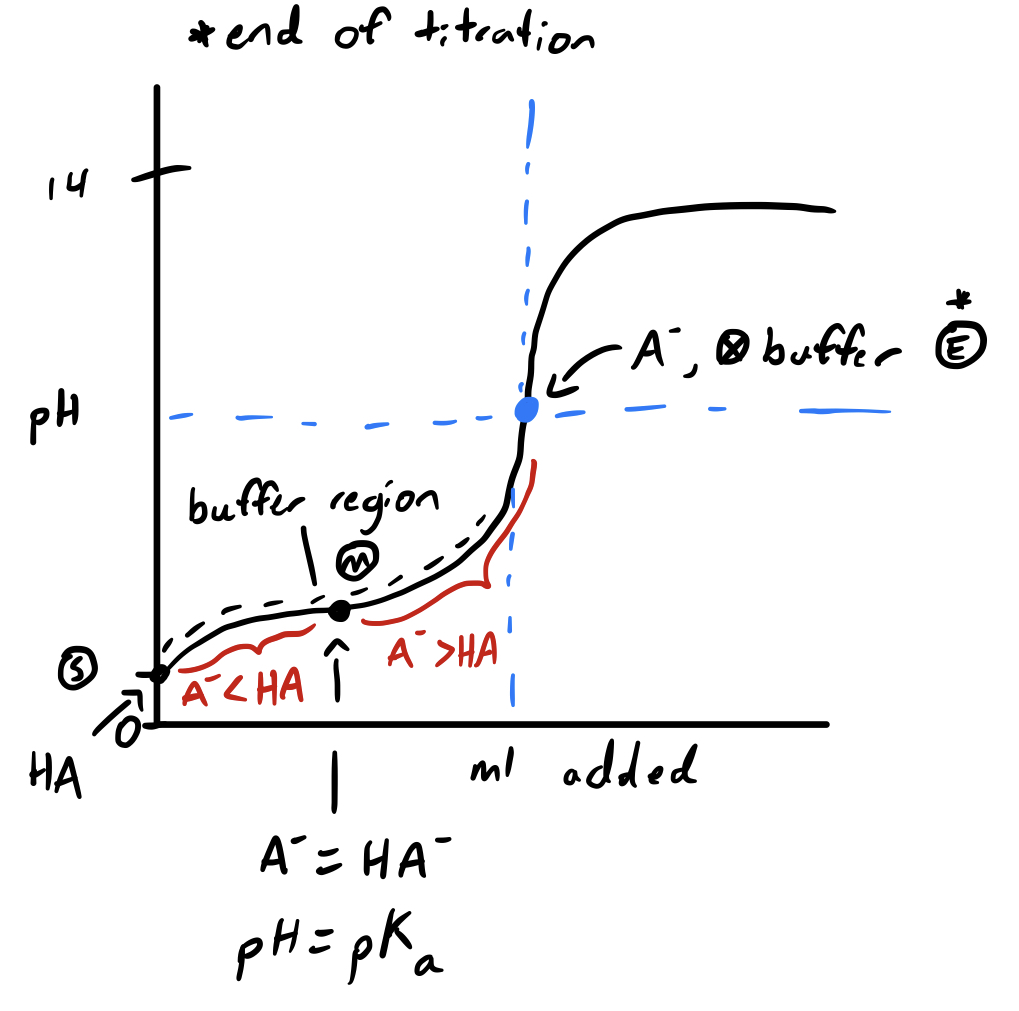 *end of titration
14
*
A⁻, ⊗ buffer Ⓔ
pH
buffer region
ⓜ
Ⓢ
A⁻ > HA
A⁻ < HA
0
HA
ml added
A⁻ = HA⁻
pH = pKₐ